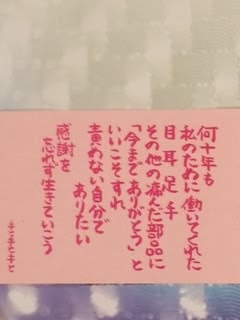 何十年も
私のために働いてくれた
目耳足手
その他の痛んだ部品に
「今までありがとう」と
いいこそすれ
責めない自分で
ありたい
感謝を
忘れず生きていこう